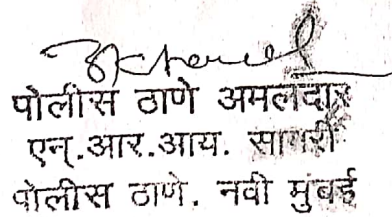 पोलीस ठाणे अमलदार
एन्.आर.आय. सागरी
पोलीस ठाणे. नवी मुंबई